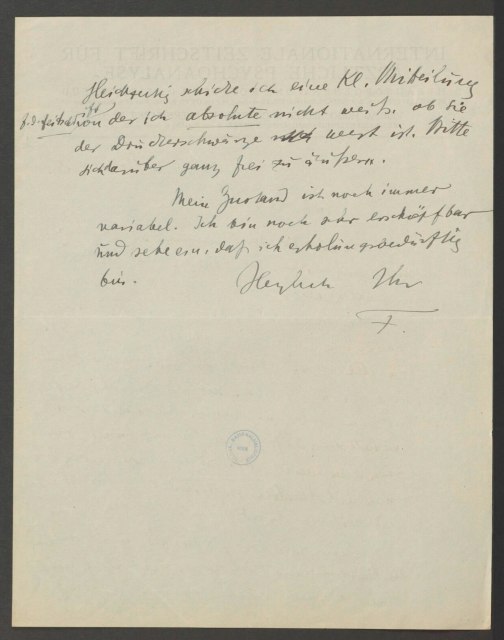 Gleichzeitig schicke ich eine kl. Mitteilung
f. d. Zeitschrift von der ich absolute nicht weiß, ob sie
der Druckerschwärze wert ist. Bitte
sich darüber ganz frei zu äußern.
Mein Zustand ist noch immer
variabel. Ich bin noch sehr erschöpfbar
und sehe ein, daß ich erholungsbedürftig
bin. Herzlich Ihr
F.